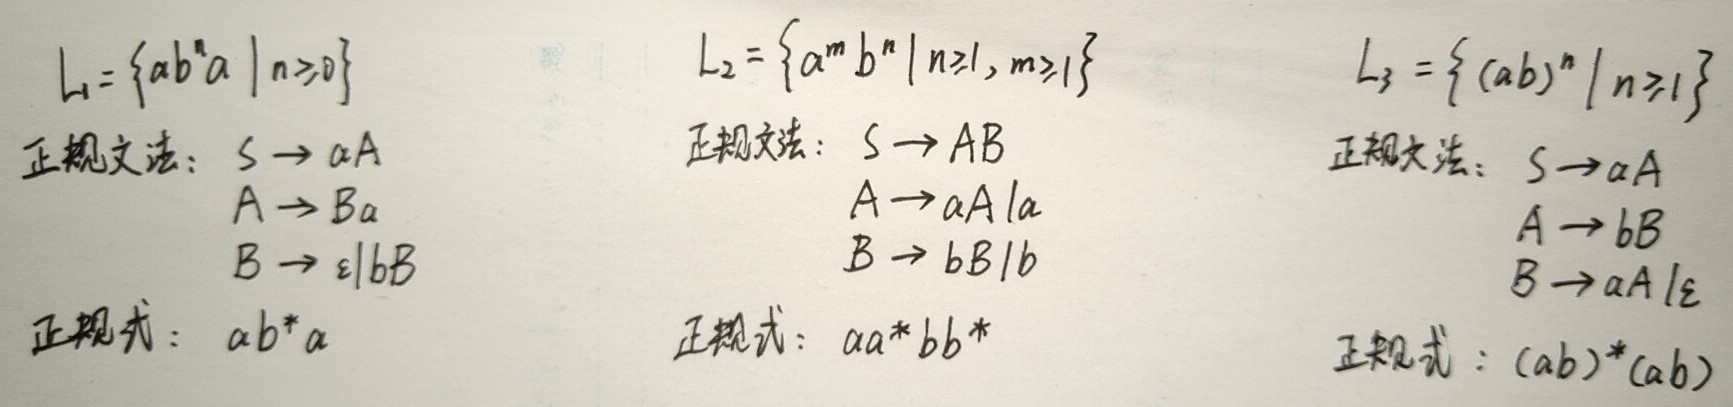 L₁ = {abⁿa | n≥0}
正规文法: S → aA
A → Ba
B → ε|bB
正规式: ab*a
L₂ = {aᵐbⁿ | n≥1, m≥1}
正规文法: S → AB
A → aA|a
B → bB|b
正规式: aa*bb*
L₃ = {(ab)ⁿ | n≥1}
正规文法: S → aA
A → bB
B → aA|ε
正规式: (ab)*(ab)